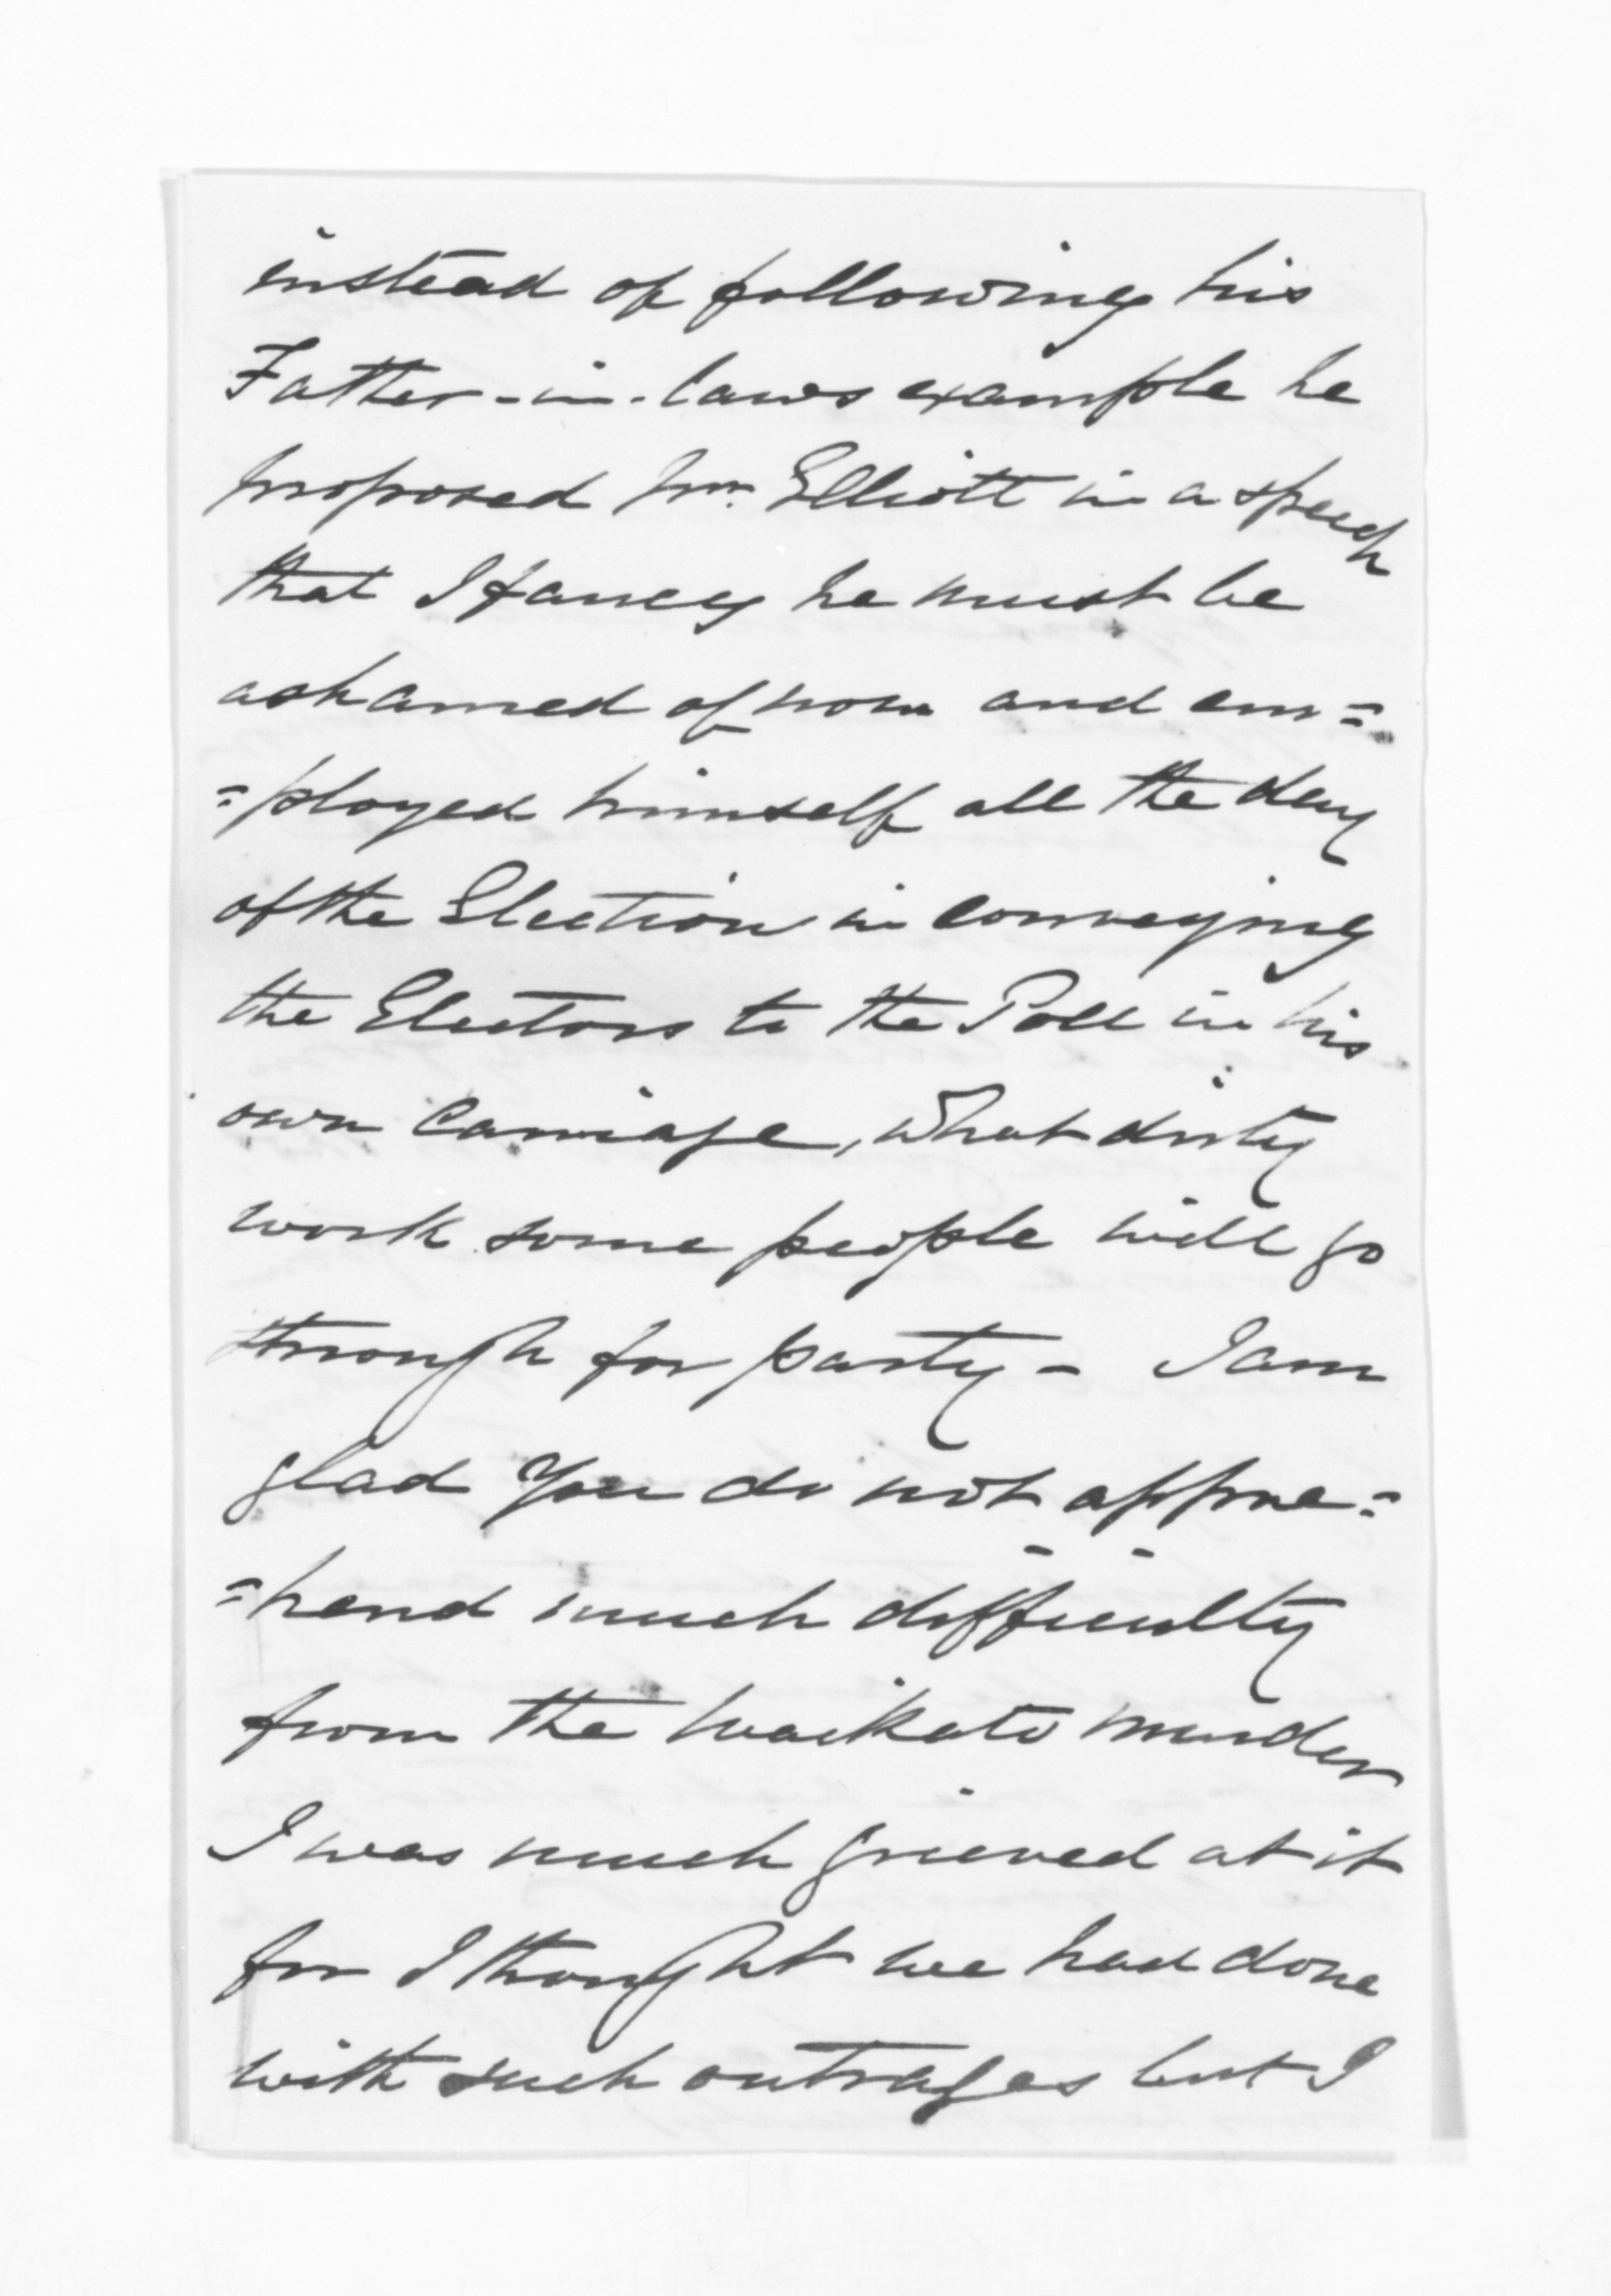 instead of following his
Father-in-laws example he
proposed Mr. Elliott in a speech
that I fancy he must be
ashamed of now and em=
=ployed himself all the day
of the Election in conveying
the Electors to the Poll in his
own Carriage, what dirty
work some people will go
through for party - I am
glad you do not appre=
=hend much difficulty
from the Waikato murder
I was much grieved at it
for I thought we had done
with such outrages but I